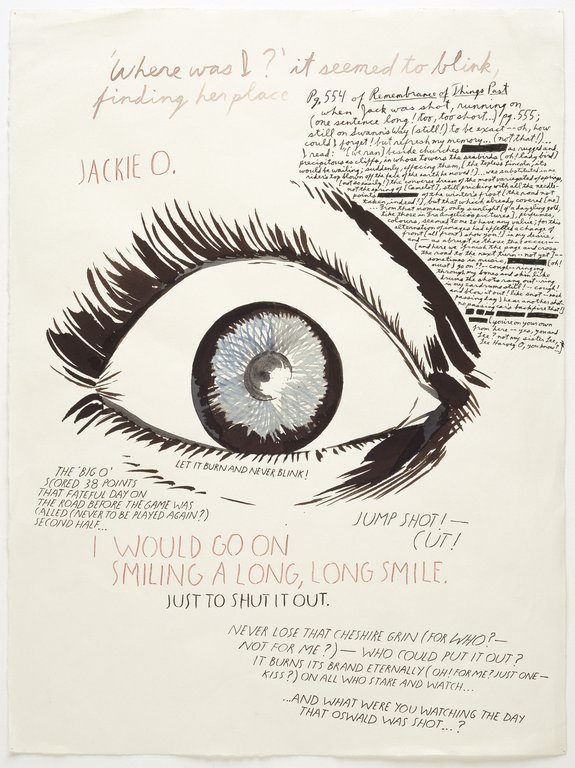 'Where was I?' it seemed to blink,
finding her place
JACKIE O.
Pg. 554 of Remembrance of Things Past
when Jack was shot, running on
(one sentence long! too, too short...) pg. 555;
still on Swann's Way (still!) to be exact -- oh, how
could I forget! but refresh my memory... (not that!)
I read: "(we ran) beside the churches as rugged and
precipitous as cliffs, in whose towers the seabirds (oh! lady bird)
would be wailing; suddenly, effacing them, (the topless Lincoln, its
riders too blown off the back of the earth, he moved!) ... was substituted in me
(not so easily!) the converse dream of the most variegated of springs,
not the spring of (Camelot?), still pricking with all the needle-
points
taken, indeed!), but that which already covered (me)
... From that moment, only sunlight of a dazzling gold,
like those in Fra Angelico's pictures), perfumes,
colours, seemed to me to have any value; for this
alternation of images had effected a change of
front (all front) show you!) in my desire,
and -- as abrupt as those that occur --
(and here we finish the page and cross
the road to the next turn -- not yet)--
sometimes in music, (oh!
must I go on!! -- cough -- ringing
through my bones and skin like
drums the shots rang out -- ring
in my eardrums still) -- cough!
and blow it out! like that -- most
passing day I hear another shot
no passing car's backfire that!)
(you're on your own
from here -- yes, you and
Lee? not my sister Lee,
Lee Harvey O, you know?...)
LET IT BURN AND NEVER BLINK!
THE 'BIG O'
SCORED 38 POINTS
THAT FATEFUL DAY ON
THE ROAD BEFORE THE GAME WAS
CALLED (NEVER TO BE PLAYED AGAIN?)
SECOND HALF...
JUMP SHOT! —
CUT!
I WOULD GO ON
SMILING A LONG, LONG SMILE.
JUST TO SHUT IT OUT.
NEVER LOSE THAT CHESHIRE GRIN (FOR WHO?—
NOT FOR ME?) — WHO COULD PUT IT OUT?
IT BURNS ITS BRAND ETERNALLY (OH! FOR ME? JUST ONE—
KISS?) ON ALL WHO STARE AND WATCH...
...AND WHAT WERE YOU WATCHING THE DAY
THAT OSWALD WAS SHOT...?